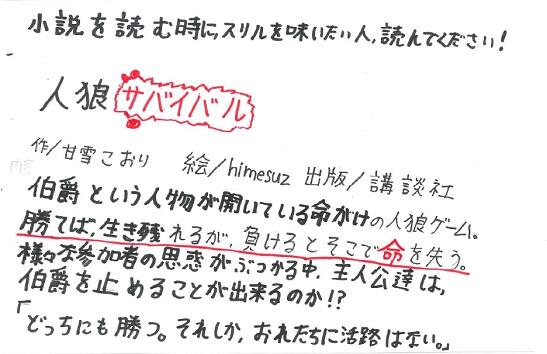 小説を読む時に、スリルを味いたい人、読んでください!
人狼サバイバル
作/甘雪こおり 絵/himesuz 出版/講談社
伯爵という人物が開いている命がけの人狼ゲーム。
勝てば、生き残れるが、負けるとそこで命を失う。
様々な参加者の思惑がぶつかる中、主人公達は、
伯爵を止めることが出来るのか!?
「どっちにも勝つ。それしか、おれたちに活路はない。」